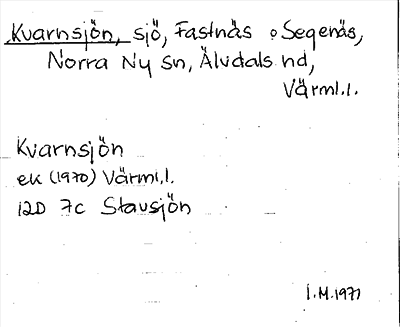 Kvarnsjön, sjö, Fastnäs o Segenäs,
Norra Ny sn, Älvdals hd,
Värml.l.
Kvarnsjön
ek (1970) Värml.l.
12D 7c Stavsjön
I.M. 1971